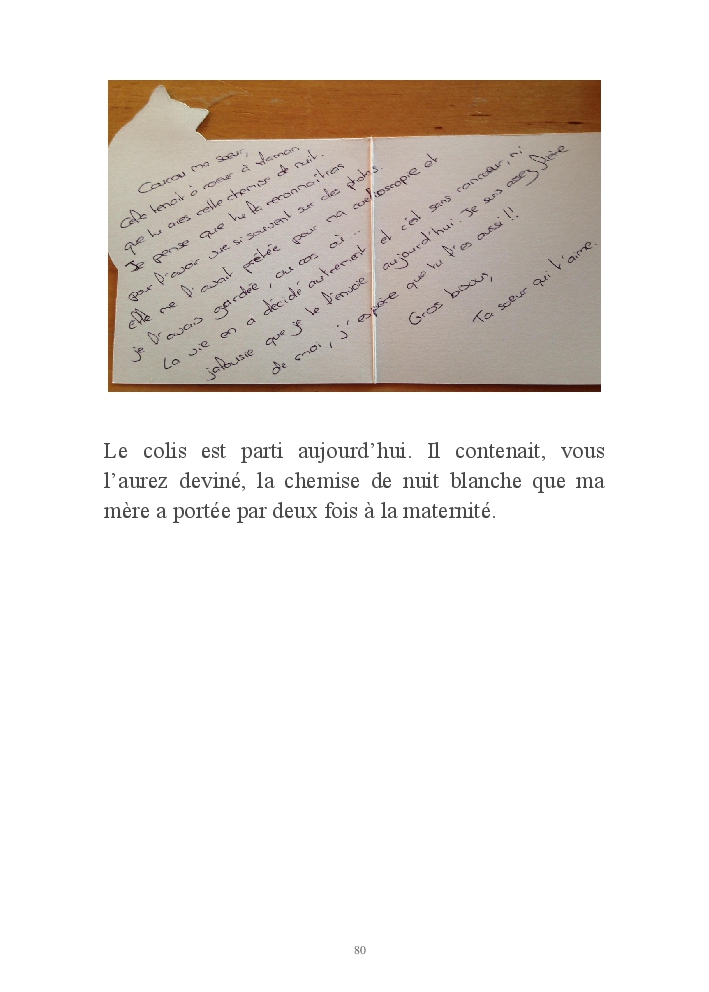 Coucou ma sœur,
Cela tenait à cœur à Maman
que tu aies cette chemise de nuit.
Je pense que tu la reconnaîtras
pour l'avoir vue si souvent sur des photos.
elle me l'avait prêtée pour ma cœlioscopie et
je l'avais gardée, au cas où...
La vie en a décidé autrement et c'est sans rancœur, ni
jalousie que je te l'envoie aujourd'hui. Je suis assez fière
de moi, j'espère que tu l'es aussi !!
Gros bisous,
Ta sœur qui t'aime.
Le colis est parti aujourd'hui. Il contenait, vous
l'aurez deviné, la chemise de nuit blanche que ma
mère a portée par deux fois à la maternité.
80